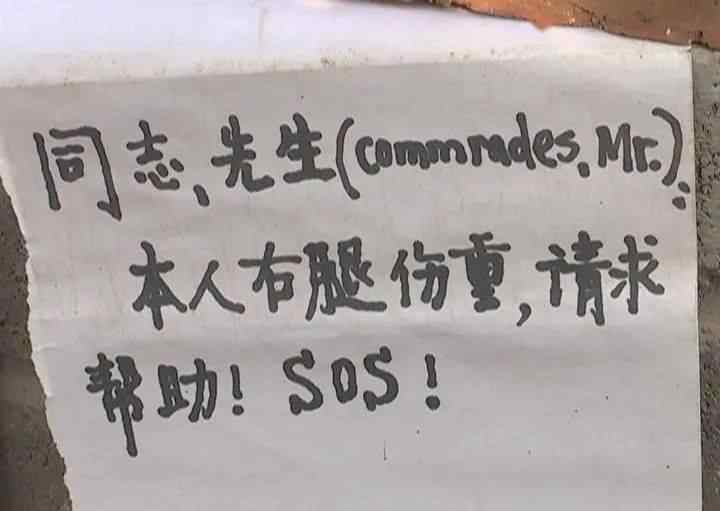 同志、先生(commrades, Mr.):
本人右腿伤重,请求
帮助! SOS!